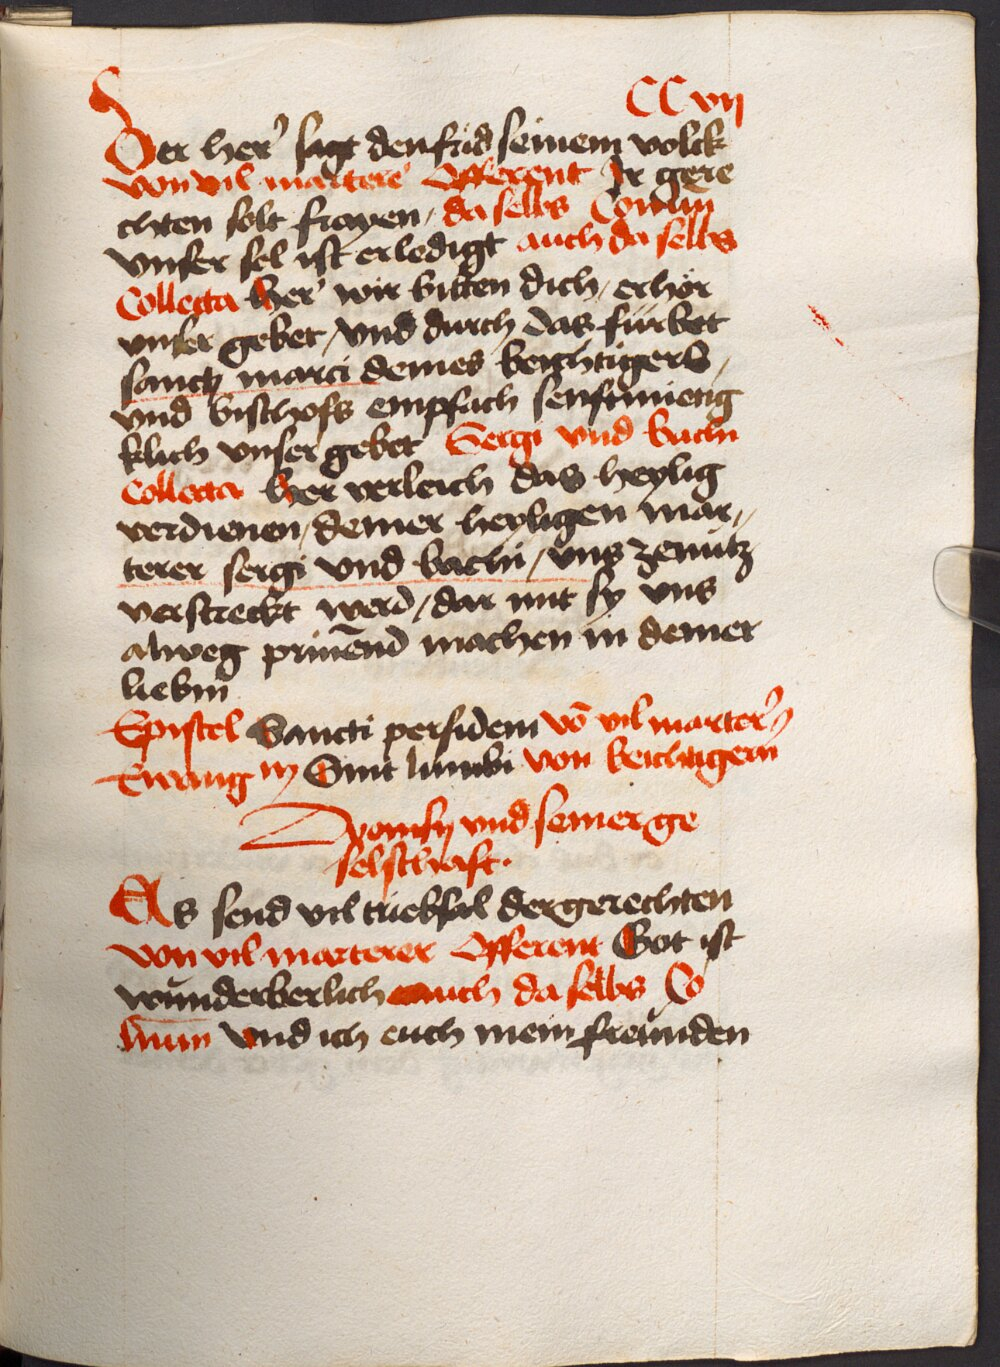 CC vij
Der her' sagt den frid seinem volck
von vil martere' Offerent Ir gere
chten solt frayen, da selbs Comun
vnser sel ist erledigt auch da selbs
Collecta Her' wir bitten dich, erhör
vnser gebet, vnd durch das fürbet
sanctj marci deines beichtigers,
vnd bischofs empfach senfftmietig
klich vnser gebet Sergi vnd bachi
Collecta Her verleich das heylig
verdienen, deiner heyligen mar,,
terer sergi vnd bachi, vns ze nutz
verstreckt werd, dar mit sy vns
alweg prinēnd machen in deiner
liebin
Epistel Sancti per fidem vō vil marterer
Ewang iij Sint lumbi von beichtigern
Dyonisij vnd seiner ge
selschafft.
Es send vil triebsal der gerechten
von vil marterer Offerent Got ist
wunderberlich auch da selbs Co
mun Vnd ich euch mein freunden